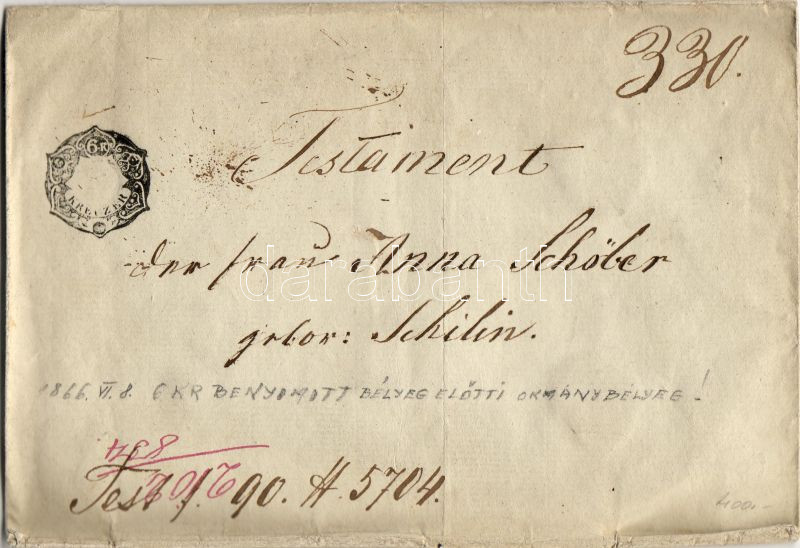 330.
6 K
KREUZER
Testament
der frau Anna Schöber
gebor: Schilin.
1866. VI. 8. 6 KR BENYOMOTT BÉLYEG ELŐTTI OKMÁNYBÉLYEG!
834
Test 1. 90. H. 5704.
400.-
darabanth